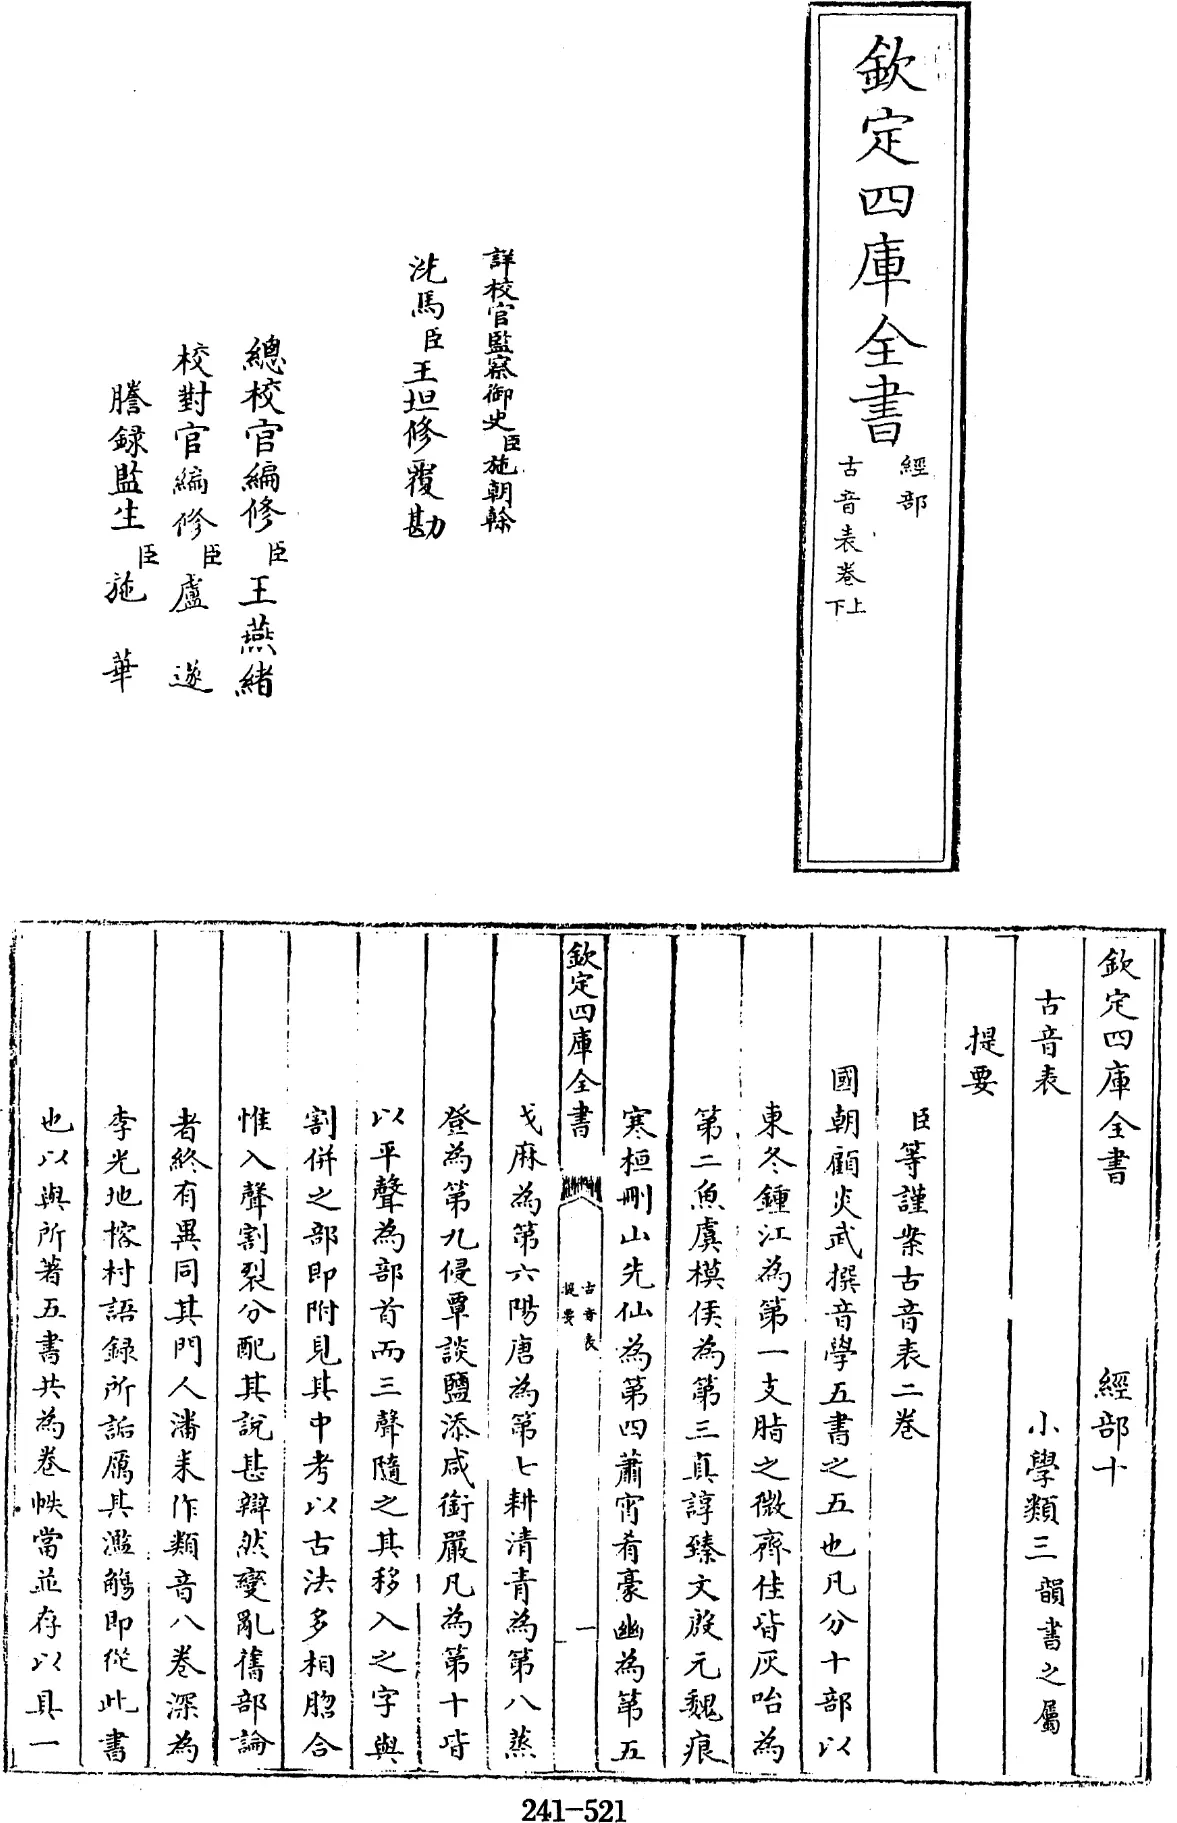 欽定四庫全書
經部
古音表卷上下
詳校官監察御史臣施朝幹
洗馬臣王坦修覆勘
總校官編修臣王燕緒
校對官編修臣盧遂
謄錄監生臣施華
欽定四庫全書 經部十
古音表 小學類三韻書之屬
提要
臣等謹案古音表二卷
國朝顧炎武撰音學五書之五也凡分十部以
東冬鍾江為第一支脂之微齊佳皆灰咍為
第二魚虞模侯為第三真諄臻文殷元魂痕
寒桓刪山先仙為第四蕭宵肴豪幽為第五
欽定四庫全書
古音表
提要
一
戈麻為第六陽唐為第七耕清青為第八蒸
登為第九侵覃談鹽添咸銜嚴凡為第十皆
以平聲為部首而三聲隨之其移入之字與
割併之部即附見其中考以古法多相脗合
惟入聲割裂分配其說甚辯然變亂舊部論
者終有異同其門人潘耒作類音八卷深為
李光地榕村語錄所詬厲其濫觴即從此書
也以與所著五書共為卷帙當並存以具一
241-521